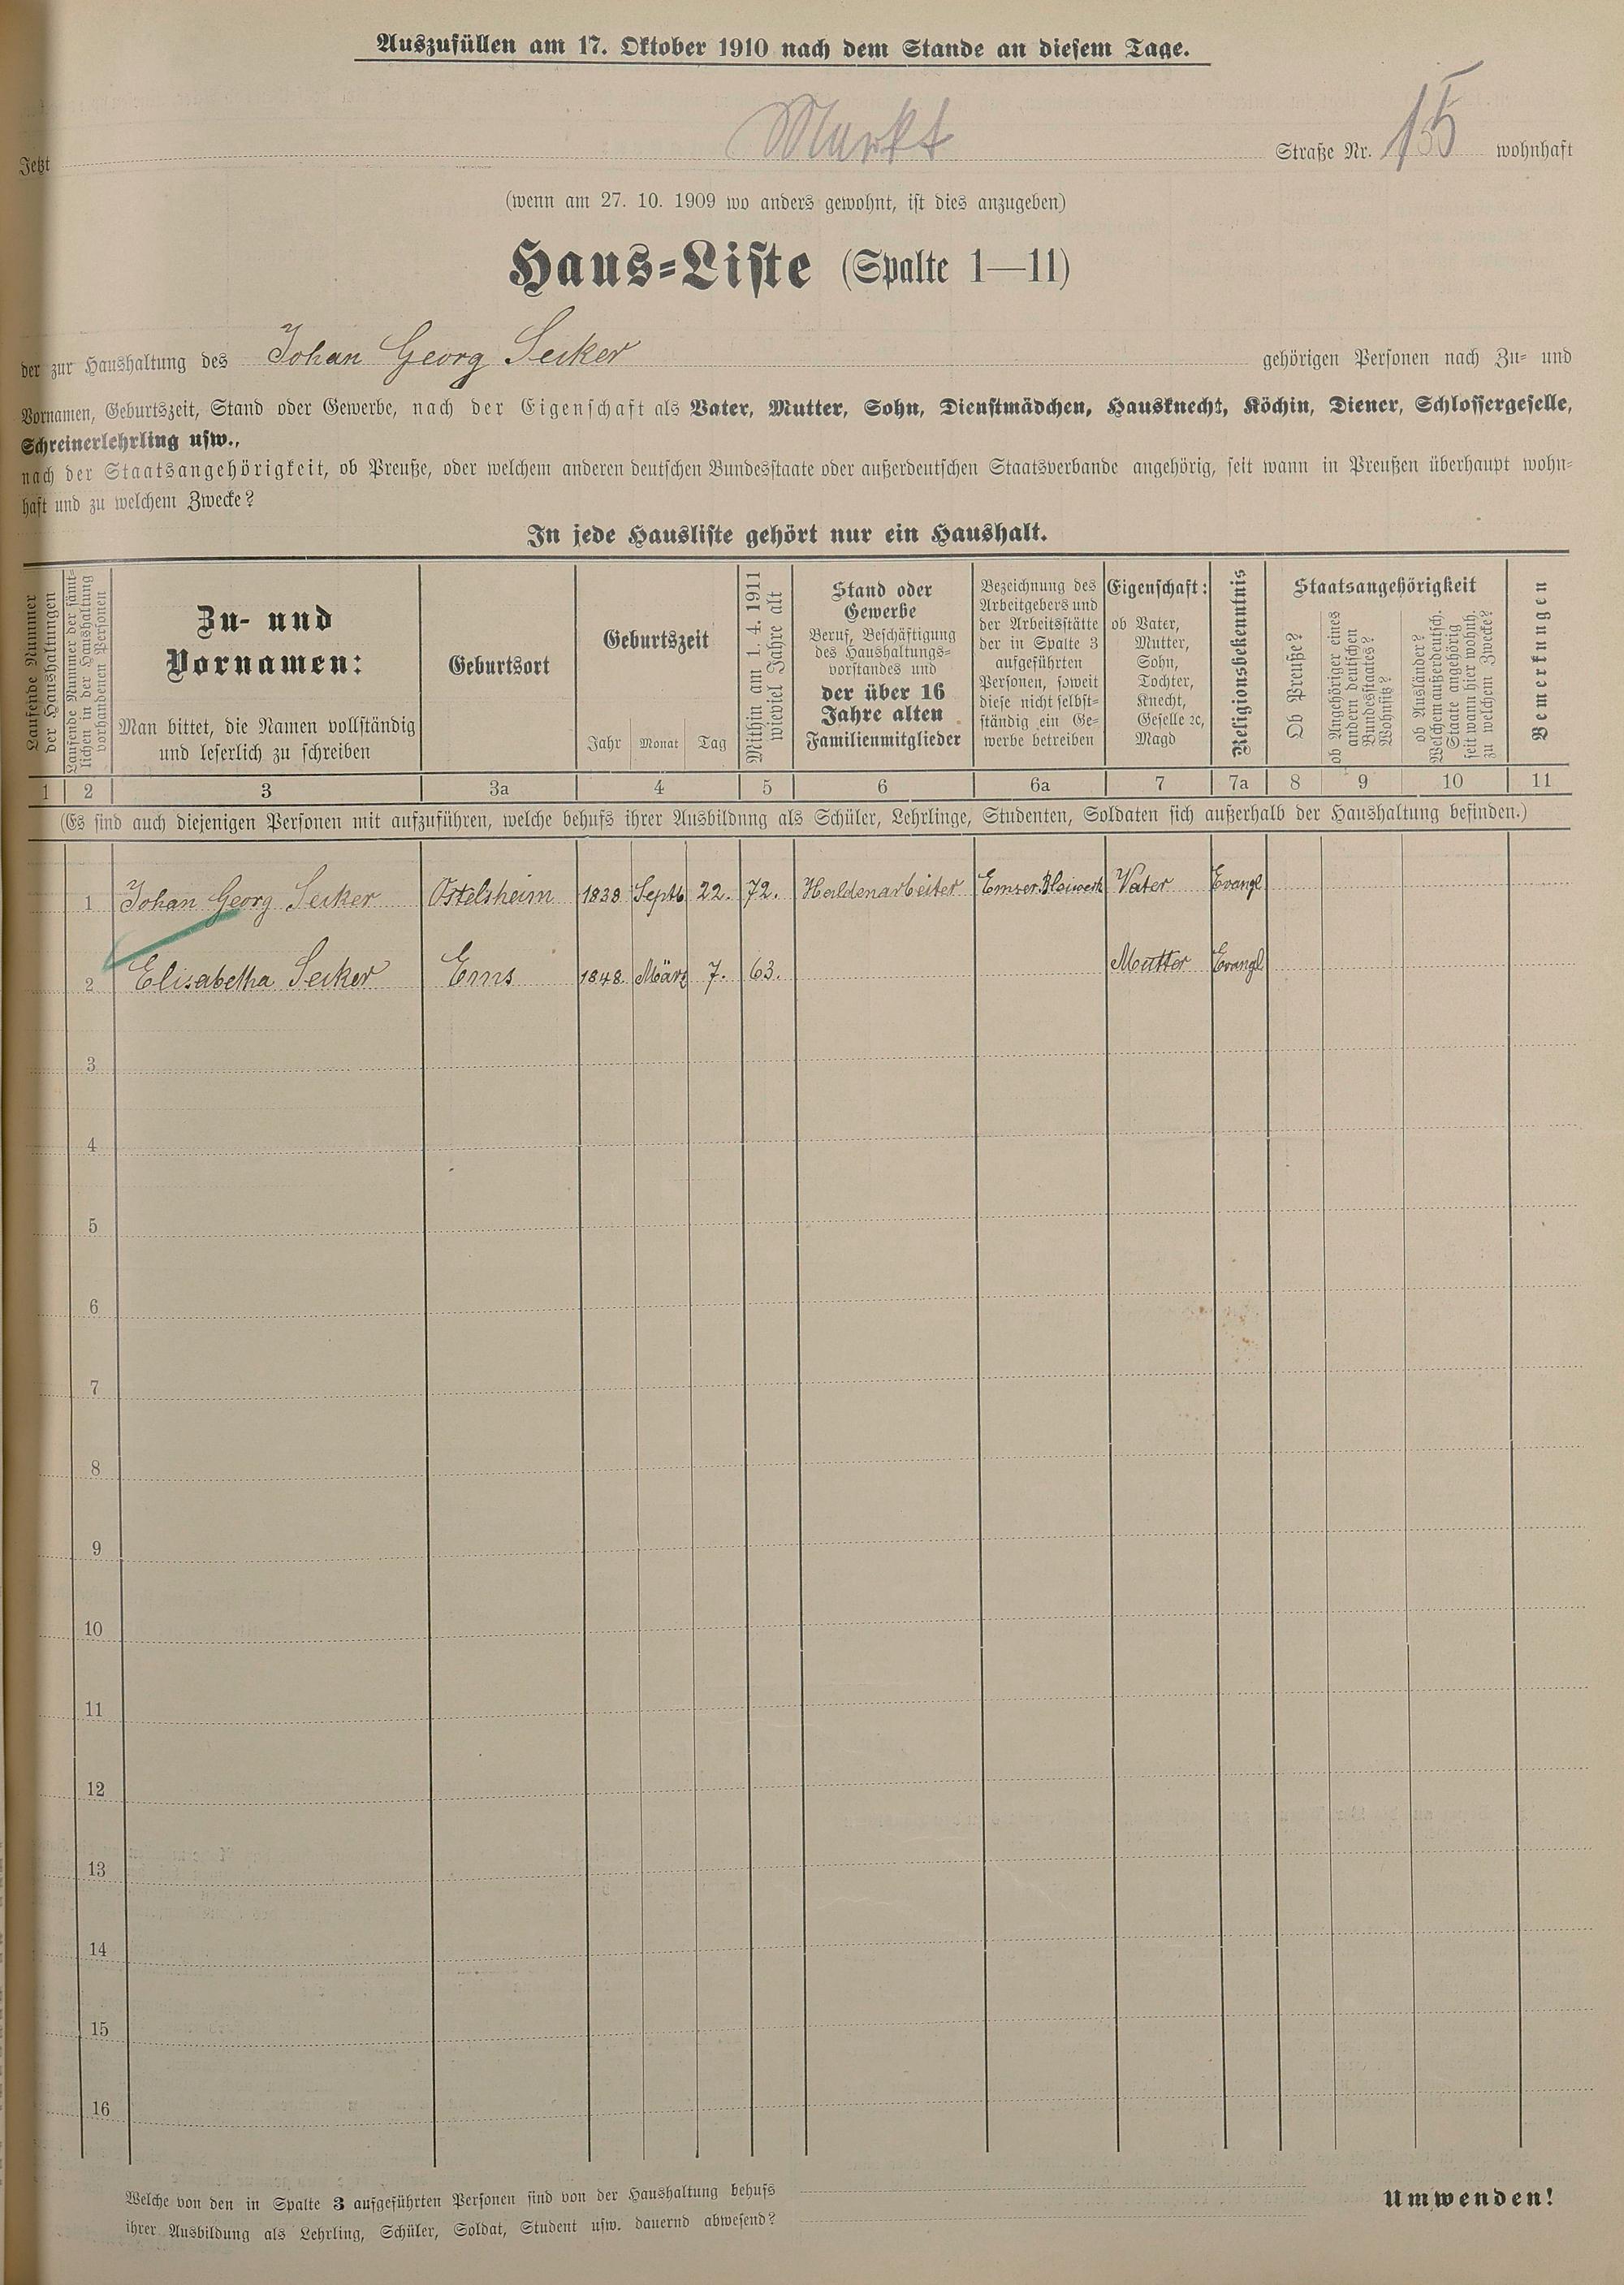 Auszufüllen am 17. Oktober 1910 nach dem Stande an diesem Tage.
Jetzt Markt Straße Nr. 15 wohnhaft
(wenn am 27. 10. 1909 wo anders gewohnt, ist dies anzugeben)
Haus-Liste (Spalte 1—11)
der zur Haushaltung des Johan Georg Seiker gehörigen Personen nach Zu- und
Vornamen, Geburtszeit, Stand oder Gewerbe, nach der Eigenschaft als Vater, Mutter, Sohn, Dienstmädchen, Hausknecht, Köchin, Diener, Schlossergeselle,
Schreinerlehrling usw.,
nach der Staatsangehörigkeit, ob Preuße, oder welchem anderen deutschen Bundesstaate oder außerdeutschen Staatsverbande angehörig, seit wann in Preußen überhaupt wohn-
haft und zu welchem Zwecke?
In jede Hausliste gehört nur ein Haushalt.
Laufende Nummer
der Haushaltungen
Laufende Nummer der sämt-
lichen in der Haushaltung
vorhandenen Personen
Zu- und
Vornamen:
Man bittet, die Namen vollständig
und leserlich zu schreiben
Geburtsort
Geburtszeit
Jahr Monat Tag
Mithin am 1. 4. 1911
wieviel Jahre alt
Stand oder
Gewerbe
Beruf, Beschäftigung
des Haushaltungs-
vorstandes und
der über 16
Jahre alten
Familienmitglieder
Bezeichnung des
Arbeitgebers und
der Arbeitsstätte
der in Spalte 3
aufgeführten
Personen, soweit
diese nicht selbst-
ständig ein Ge-
werbe betreiben
Eigenschaft:
ob Vater,
Mutter,
Sohn,
Tochter,
Knecht,
Geselle ꝛc,
Magd
Religionsbekenntnis
Staatsangehörigkeit
Ob Preuße?
ob Angehöriger eines
andern deutschen
Bundesstaates?
Wohnsitz?
ob Ausländer?
Welchem außerdeutsch.
Staate angehörig
seit wann hier wohnh.
zu welchem Zwecke?
Bemerkungen
1 2 3 3a 4 5 6 6a 7 7a 8 9 10 11
(Es sind auch diejenigen Personen mit aufzuführen, welche behufs ihrer Ausbildung als Schüler, Lehrlinge, Studenten, Soldaten sich außerhalb der Haushaltung befinden.)
1 Johan Georg Seiker Ostelsheim 1838 Septb 22. 72. Haldenarbeiter Emser Bleiwerk Vater Evangl
2 Elisabetha Seiker Ems 1848. März 7. 63. Mutter Evangl
3
4
5
6
7
8
9
10
11
12
13
14
15
16
Welche von den in Spalte 3 aufgeführten Personen sind von der Haushaltung behufs
ihrer Ausbildung als Lehrling, Schüler, Soldat, Student usw. dauernd abwesend?
Umwenden!